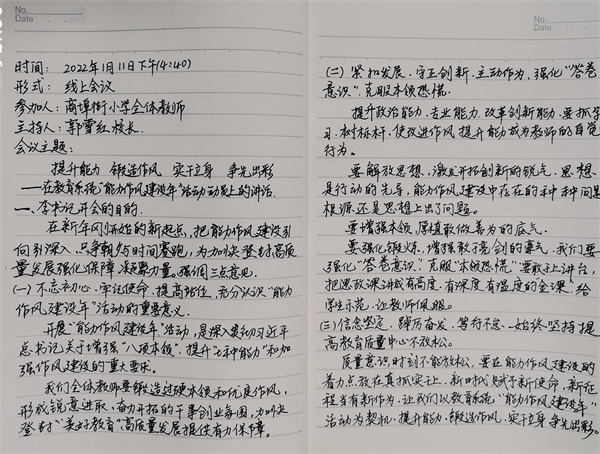 No.
Date
时间： 2022年1月11日下午(4:40)
形式： 线上会议
参加人：商埠街小学全体教师
主持人：郭雪红校长.
会议主题：
提升能力 锻造作风 实干立身 争先出彩
——在教育系统"能力作风建设年"活动动员上的讲话.
一、李书记开会的目的.
在新年刚开始的新起点，把能力作风建设引
向引深入、只争朝夕与时间赛跑，为加快登封高质
量发展强化保障.凝聚力量.强调三点意见.
(一) 不忘初心、牢记使命.提高站位.充分认识"能力
作风建设年"活动的重要意义.
开展"能力作风建设年"活动，是深入贯彻习近平
总书记关于增强"八项本领"、提升"七种能力"和加
强作风建设的重大要求。
我们全体教师要锻造过硬本领和优良作风，
形成锐意进取、奋力开拓的干事创业氛围，为加快
登封"美好教育"高质量发展提供有力保障。
No.
Date
(二) 紧扣发展、守正创新.主动作为、强化"答卷
意识".克服本领恐慌.
提升政治能力.专业能力.改革创新能力.要抓学
习.树标杆，使改进作风.提升能力成为教师的自觉
行为。
要解放思想，激发开拓创新的锐气.思想
是行动的先导，能力作风建设中存在的种种问题
根源还是思想上出了问题。
要增强本领.厚植敢做善为的底气.
要强化锻炼.增强敢于亮剑的勇气.我们要
强化"答卷意识".克服"本领恐慌"要敢于上讲台，
把思政课讲成有高度.有深度有温度的金课.给
学生示范.让教师佩服。
(三) 信念坚定、踔厉奋发、笃行不怠、始终坚持提
高教育质量中心不放松.
质量意识时刻不能放松，要在能力作风建设的
着力点放在真抓实干上.新时代赋予新使命，新征
程当有新作为.让我们以教育系统"能力作风建设年"
活动为契机.提升能力.锻造作风.实干立身争先出彩。